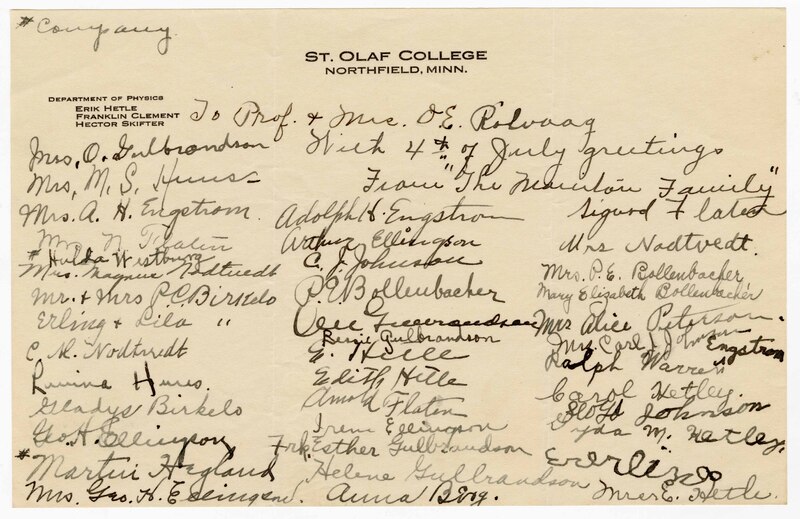 * Company
ST. OLAF COLLEGE
NORTHFIELD, MINN.
DEPARTMENT OF PHYSICS
ERIK HETLE
FRANKLIN CLEMENT
HECTOR SKIFTER
To Prof. & Mrs. O.E. Rolvaag
With 4th of July greetings
From "The Manitou Family"
Mrs. O. Gulbrandson
Mrs. M. S. Huus
Mrs. A. H. Engstrom
N. Flaten
* Hulda Westburg
Mrs. Magnus Nodtvedt
Mr. & Mrs P.C. Birkelo
Erling & Lila "
C M. Nodtvedt
Huus.
Gladys Birkelo
Geo. H. Ellingson
* Martin Hegland
Mrs. Geo. H. Ellingson.
Adolph H. Engstrom
Arthur Ellingson
C. J. Johnson
P.E. Bollenbacher
Gulbrandson
E. Hetle
Edith Hetle
Arnold Flaten
Irene Ellingson
Esther Gulbrandson
Helene Gulbrandson
Anna Berg.
Sigurd Flaten
Mrs Nodtvedt.
Mrs. P.E. Bollenbacher
Mary Elizabeth Bollenbacher
Mrs Alice Peterson.
Mrs. Carl J. Johnson
Ralph Warren Engstrom
Carol Hetley.
Lloyd Johnson
Lyda M. Hetley.
Mrs E. Hetle.